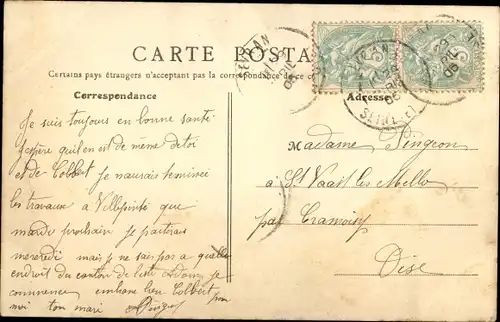 CARTE POSTA
Certains pays étrangers n'acceptant pas la correspondance de ce c
Correspondance
Adresse
SEVRAN
SEINE
Je suis toujours en bonne santé
j'espère qu'il en est de même de toi
et de Colbert Je n'aurais terminée
les travaux a Villepinte que
mardi prochain je partirai
mercredi mais je ne sais pas a quelle
endroit du canton de l'isle Adam je
commence embrasse bien Colbert pour
moi ton mari
Madame Pingeon
à St Vaast les Mello
par Cramoisy
Oise